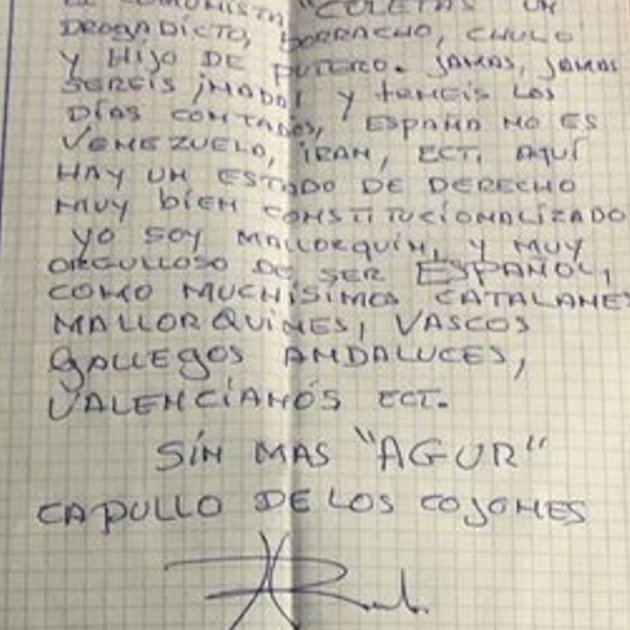 COMUNISTA "COLETAS" UN
DROGADICTO, BORRACHO, CHULO
Y HIJO DE PUTERO. JAMAS, JAMAS
SEREIS ¡NADA! Y TENEIS LOS
DÍAS CONTADOS, ESPAÑA NO ES
VENEZUELA, IRAN, ECT. AQUÍ
HAY UN ESTADO DE DERECHO
MUY BIEN CONSTITUCIONALIZADO
YO SOY MALLORQUÍN, Y MUY
ORGULLOSO DE SER ESPAÑOL,
COMO MUCHÍSIMOS CATALANES
MALLORQUINES, VASCOS
GALLEGOS ANDALUCES,
VALENCIANOS ECT.
SIN MAS "AGUR"
CAPULLO DE LOS COJONES